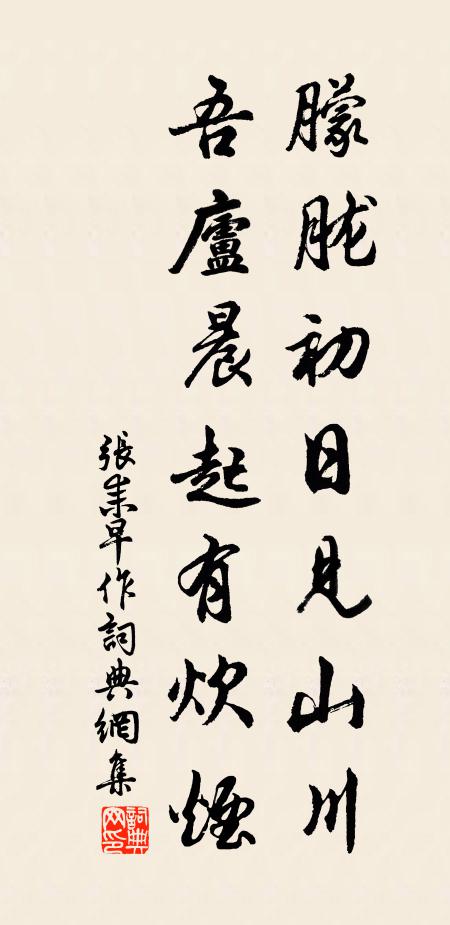 朦朧初日見山川
吾廬晨起有炊煙
張耒早作詞典網集
詞典網印